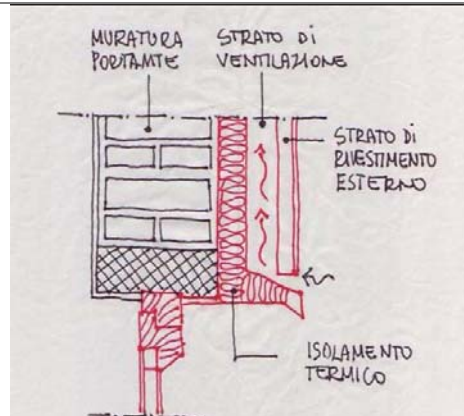 MURATURA
PORTANTE
STRATO DI
VENTILAZIONE
STRATO DI
RIVESTIMENTO
ESTERNO
ISOLAMENTO
TERMICO